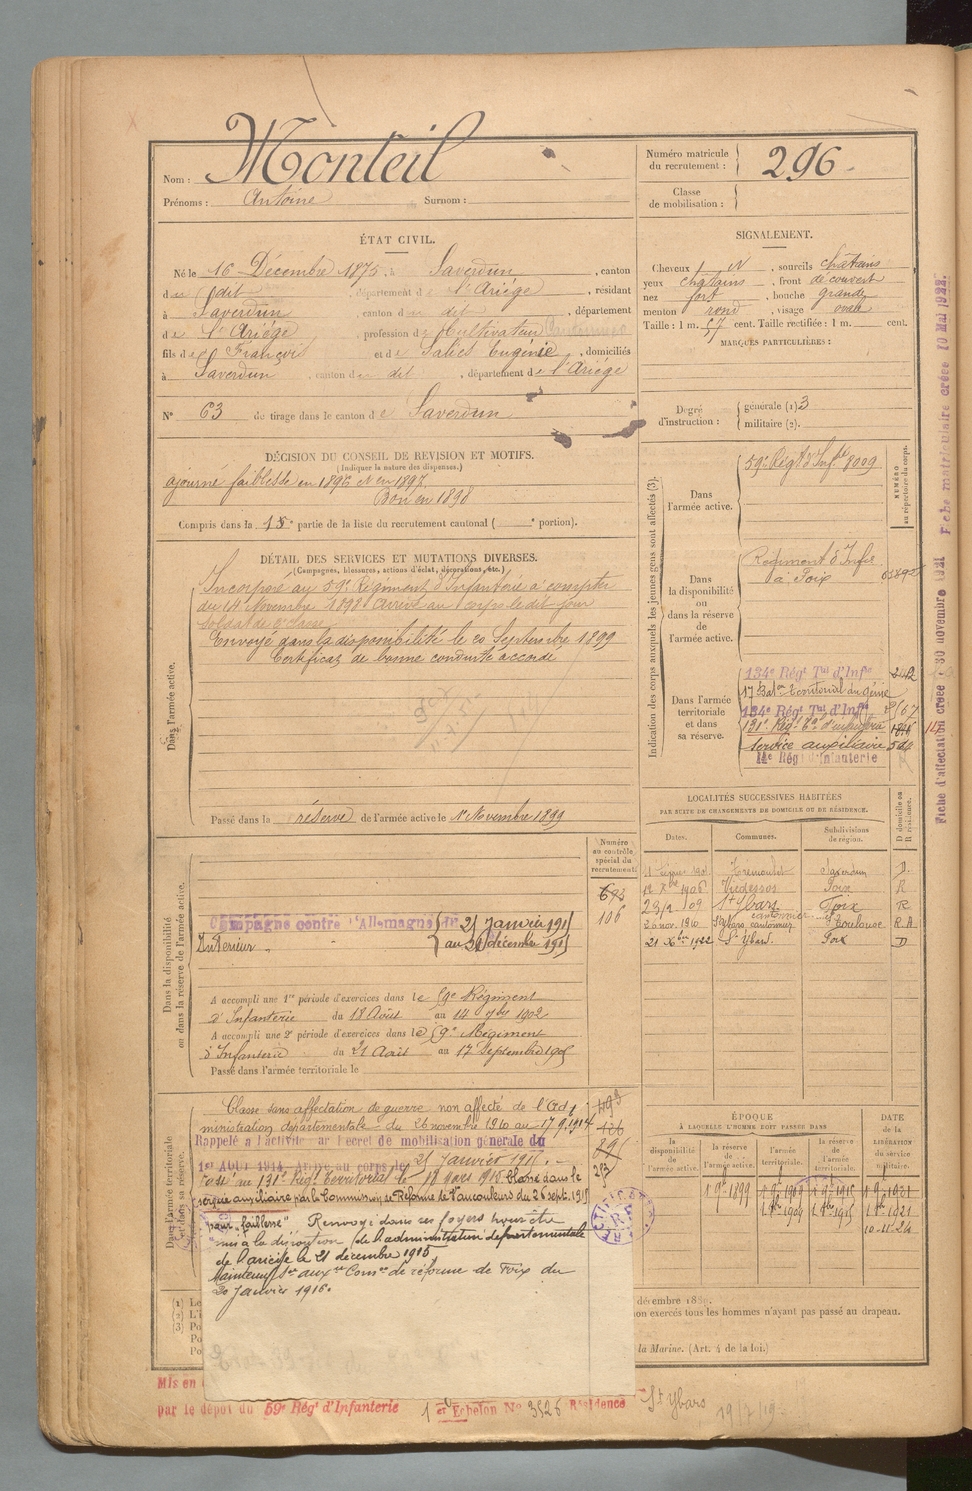 Nom : Monteil
Prénoms : Antoine Surnom :
Numéro matricule du recrutement : 296
Classe de mobilisation :
ÉTAT CIVIL.
Né le 16 Décembre 1875, à Saverdun, canton
du dit, département de l'Ariége, résidant
à Saverdun, canton du dit, département
de l'Ariége, profession de Cultivateur
fils de François et de Salies Eugénie, domiciliés
à Saverdun, canton de dit, département de l'Ariége
N° 63 de tirage dans le canton de Saverdun
SIGNALEMENT.
Cheveux N, sourcils châtains
yeux châtains, front découvert
nez fort, bouche grande
menton rond, visage oval
Taille : 1 m. 57 cent. Taille rectifiée : 1 m. cent.
MARQUES PARTICULIÈRES :
Degré d'instruction : générale (1) 3
militaire (2).
DÉCISION DU CONSEIL DE REVISION ET MOTIFS.
(Indiquer la nature des dispenses.)
ajourné faiblesse en 1896 et en 1897
Bon en 1898
Compris dans la 15e partie de la liste du recrutement cantonal ( e portion).
DÉTAIL DES SERVICES ET MUTATIONS DIVERSES.
(Campagnes, blessures, actions d'éclat, décorations, etc.)
Dans l'armée active.
Incorporé au 59e Régiment d'Infanterie à compter
du 14 Novembre 1898 Arrivé au corps le dit jour
soldat de 2e classe
Envoyé dans la disponibilité le 20 Septembre 1899
Certificat de bonne conduite accordé
Passé dans la réserve de l'armée active le 1er Novembre 1899
Indication des corps auxquels les jeunes gens sont affectés (3).
NUMÉRO au répertoire du corps.
Dans l'armée active.
59e Régt d'Infie 8009
Dans la disponibilité ou dans la réserve de l'armée active.
Régiment d'Infie
à Foix
Dans l'armée territoriale et dans sa réserve.
134e Régt Tal d'Infie
17e Baton territorial du génie
134e Régt Tal d'Infie
131e Régt Tal d'infanterie
Service auxiliaire
14e Régt d'Infanterie
Fiche d'affectation créée 30 novembre 1921
Fiche matriculaire créée 10 Mai 1922
LOCALITÉS SUCCESSIVES HABITÉES
PAR SUITE DE CHANGEMENTS DE DOMICILE OU DE RÉSIDENCE.
Dates. Communes. Subdivisions de région. D domicile ou R résidence.
Trémoulet Saverdun D.
1906 Vicdessos Foix R
23/2/09 St Ybars Foix R
26 nov. 1910 St Ybars cantonnier Toulouse R.A
21 Xbre 1922 St Ybars Foix D
Dans la disponibilité ou dans la réserve de l'armée active.
Numéro au contrôle spécial du recrutement
106
Campagne contre l'Allemagne du 25 Janvier 1915
Intérieur au 21 décembre 1915
A accompli une 1re période d'exercices dans le 59e Régiment
d'Infanterie du 18 Août au 14 7bre 1902
A accompli une 2e période d'exercices dans le 59e Régiment
d'Infanterie du 21 Août au 17 Septembre 1905
Passé dans l'armée territoriale le
Dans l'armée territoriale et dans sa réserve.
Classé sans affectation de guerre non affecté de l'Ad
ministration départementale du 26 novembre 1910 au 17.9.1914
Rappelé à l'activité par Décret de mobilisation générale du
1er AOUT 1914. Arrivé au corps le 25 Janvier 1915.
Passé au 131e Régt Territorial le 19 mars 1915 Classé dans le
service auxiliaire par la Commission de Réforme de Vaucouleurs du 26 sept. 1915
pour "faiblesse" Renvoyé dans ses foyers pour être
mis à la disposition de l'administration départementale
de l'ariège le 21 décembre 1915
Maintenu Sce auxre Comon de réforme de Foix du
20 Janvier 1916.
ÉPOQUE
À LAQUELLE L'HOMME DOIT PASSER DANS
la disponibilité de l'armée active. la réserve de l'armée active. l'armée territoriale. la réserve de l'armée territoriale.
DATE de la LIBÉRATION du service militaire.
1 9bre 1899
10-11-24
non exercés tous les hommes n'ayant pas passé au drapeau.
la Marine. (Art. 4 de la loi.)
Mis en
par le dépôt du 59e Régt d'Infanterie 1er Echelon N° 3526 Résidence St Ybars